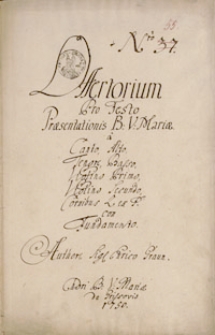 53
Nro 37.
Offertorium
Pro Festo
Præsentationis B: V: Mariæ.
à
Canto, Alto,
Tenore, Basso,
Violino Primo,
Violino Secondo,
Cornibus 2. ex F.
con
Fundamento.
Authore Sigl:
Chori B: V: Mariæ
de
1758.